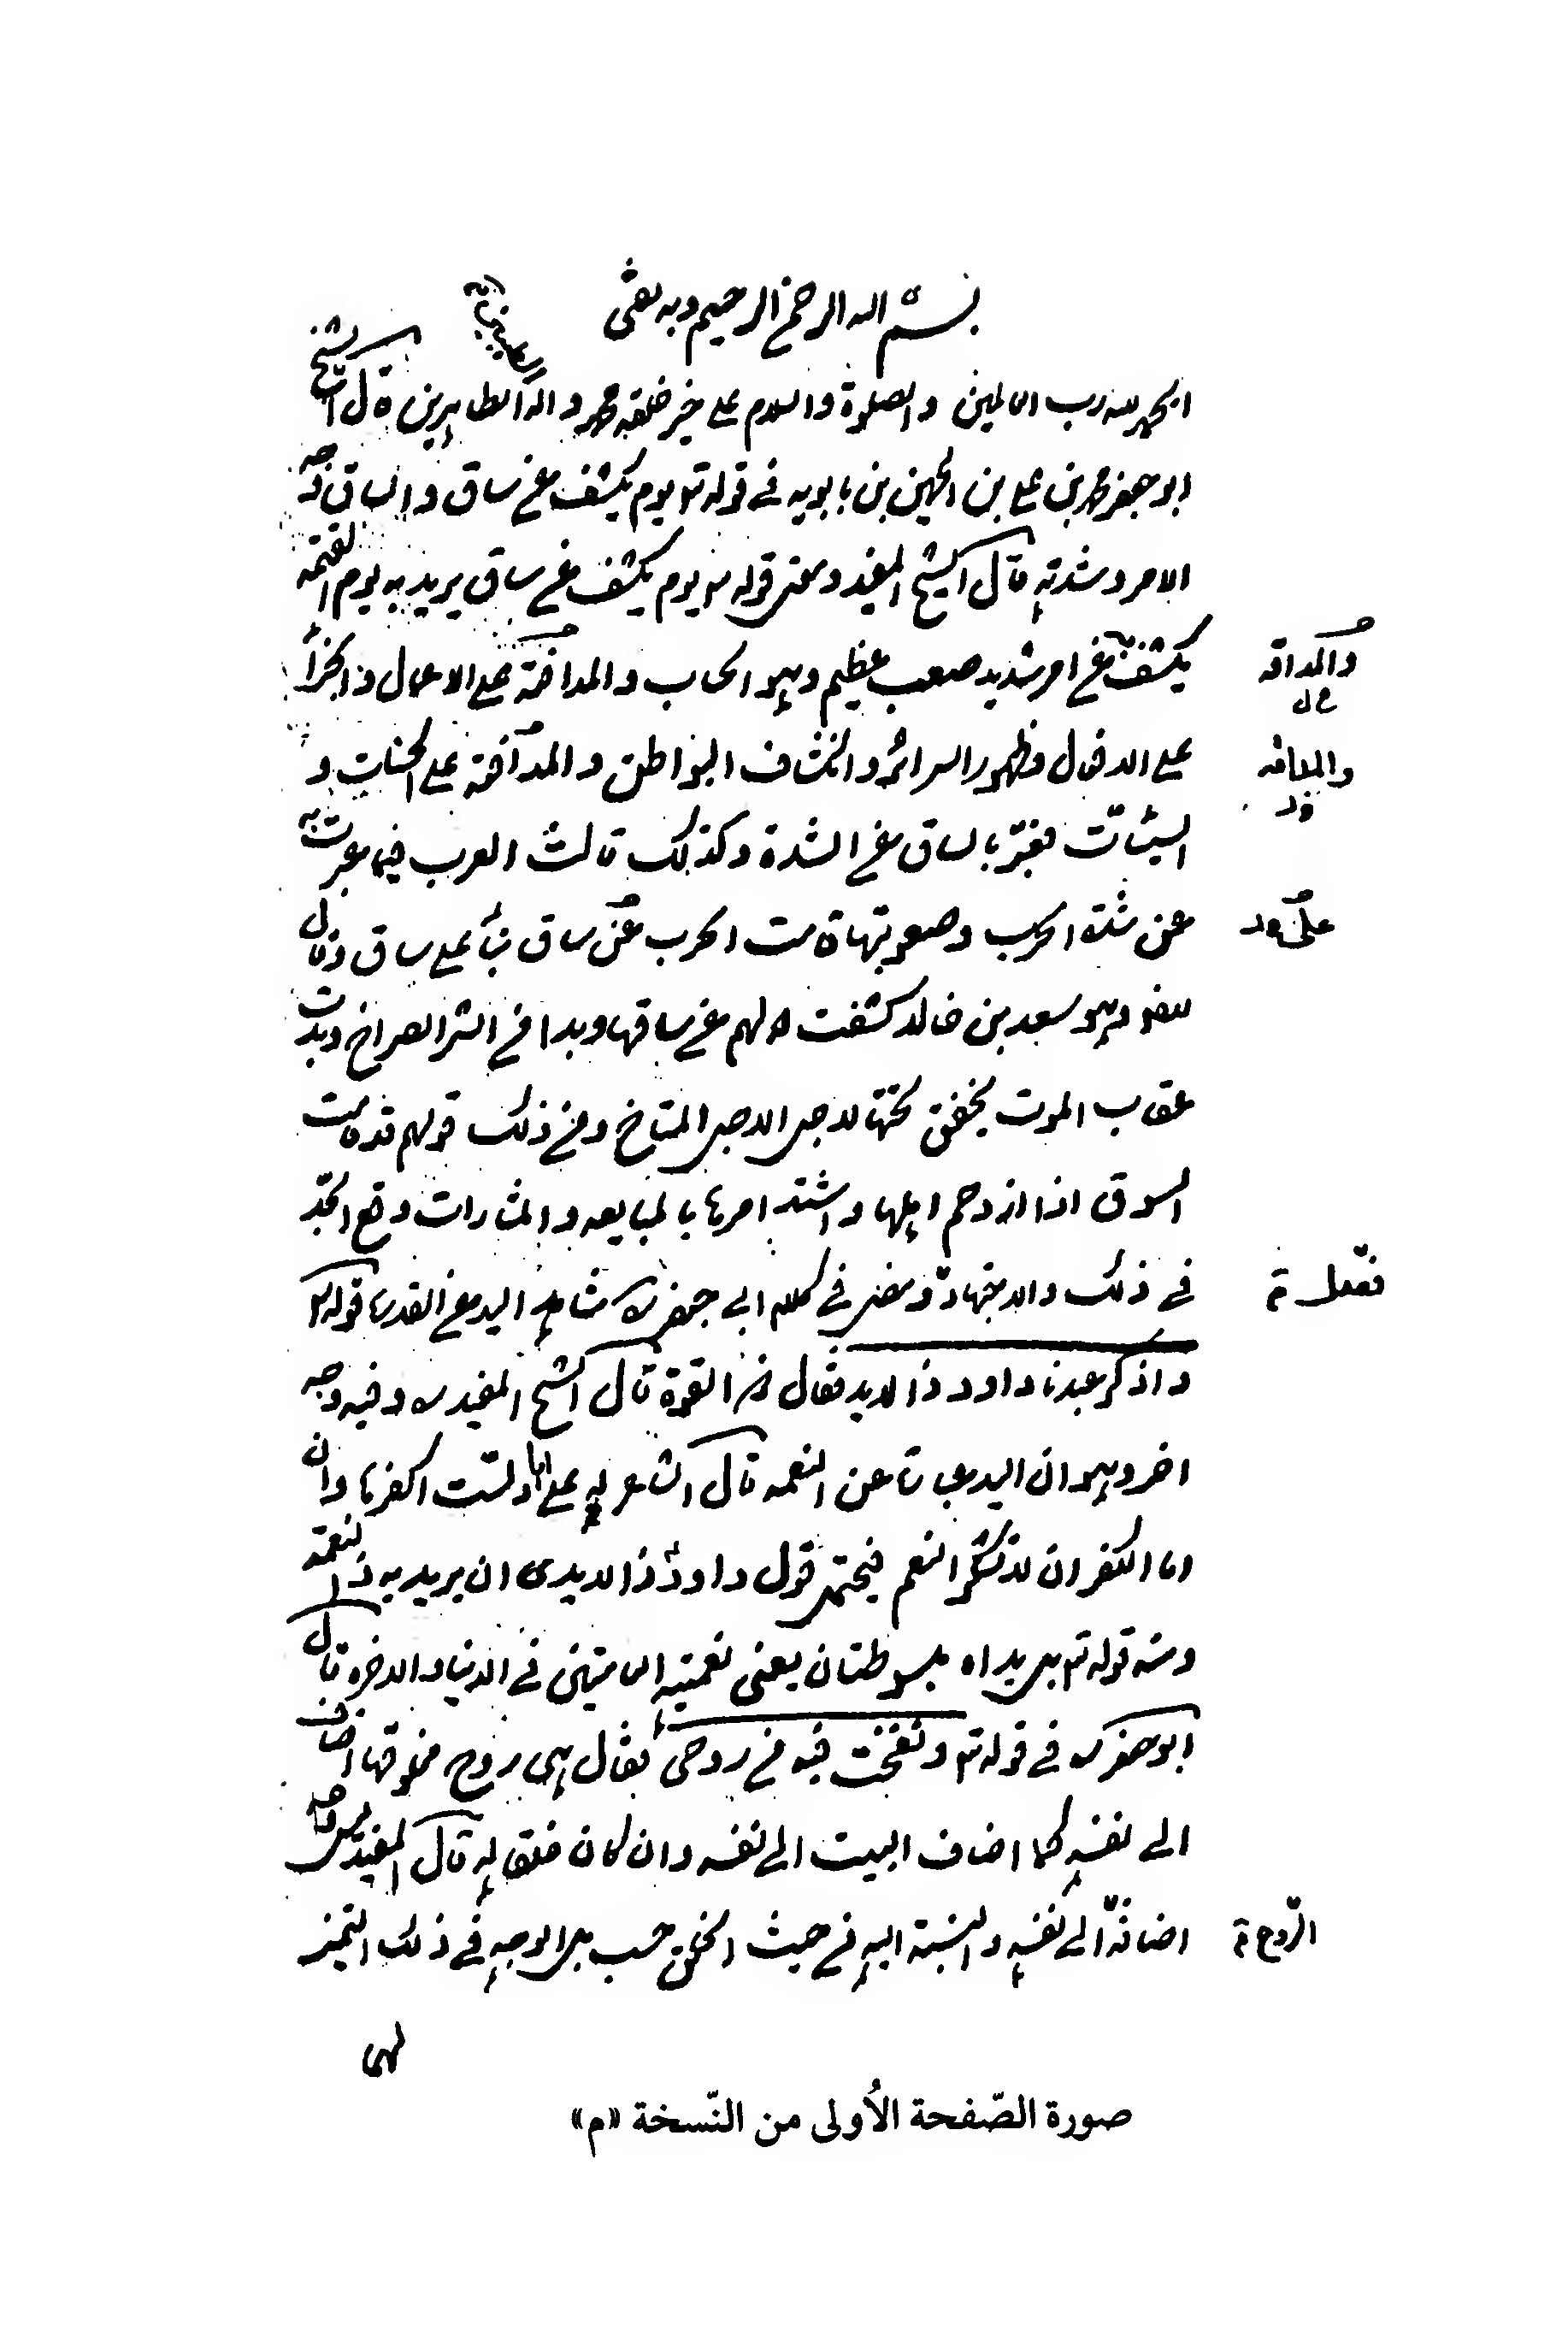 بسم الله الرحمن الرحيم وبه ثقتي
الحمد لله رب العالمين والصلوة والسلام على خير خلقه محمد واله الطاهرين قال الشيخ
ابو جعفر محمد بن علي بن الحسين بن بابويه في قوله تع يوم يكشف عن ساق والساق وجه
الامر وشدته قال الشيخ المفيد ومعنى قوله تع يوم يكشف عن ساق يريد به يوم القيمة
يكشف فيه عن امر شديد صعب عظيم وهو الحساب والمداقة على الاعمال والجزاء
والمداقه
على الافعال وظهور السرائر وانكشاف البواطن والمداقة على الحسنات و
السيئات فعبر بالساق عن الشدة وكذلك قالت العرب فيما عبرت به
عن شدة الحرب وصعوبتها قامت الحرب عن ساق بنا على ساق وقال
على
شاعرهم وهو سعد بن خالد كشفت لهم عن ساقها وبدا من الشر الصراح وبدت
عقاب الموت يخفق تحتها الاجل المتاح ومن ذلك قولهم قد قامت
السوق اذا ازدحم اهلها واشتد امرها بالمبايعه والمشارات ووقع الجد
في ذلك والاجتهاد ومضى في كلام ابي جعفر ره شاهد اليد عن القدرة قوله تع
فصل
واذكر عبدنا داود ذا الايد فقال ذو القوة قال الشيخ المفيد ره وفيه وجه
اخر وهو ان اليد عبارة عن النعمه قال الشاعر له علي اياد لست اكفرها وان
ما الكفر ان لا تشكر النعم فيحتمل قوله داود ذا الايد ان يريد به ذا النعمة
ومنه قوله تع بل يداه مبسوطتان يعنى نعمتيه العامتين في الدنيا والاخره قال
ابو جعفر ره في قوله تع ونفخت فيه من روحي فقال هي روح مخلوقة اضاف
الى نفسه كما اضاف البيت الى نفسه وان كان خلقا له قال المفيد ليس وجه
اضافة الى نفسه والنسبة اليه من حيث الخلق حسب بل الوجه في ذلك التميز
الروح
لهما
صورة الصّفحة الأُولى من النّسخة «م»